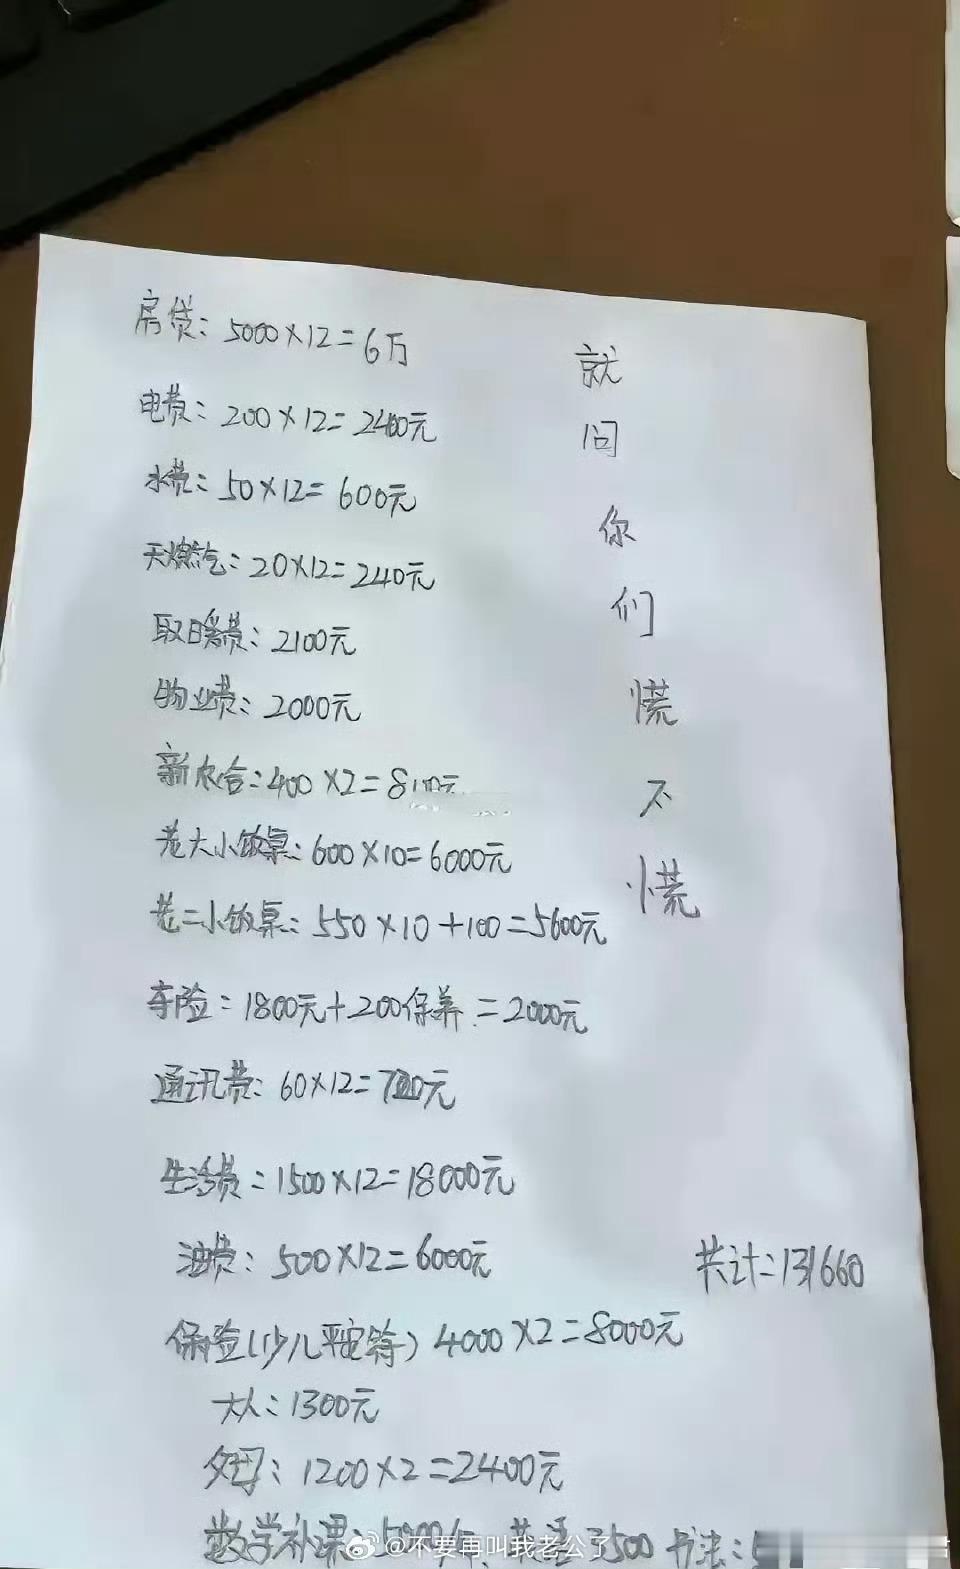 房贷：5000×12=6万
电费：200×12=2400元
水费：50×12=600元
天燃气：20×12=240元
取暖费：2100元
物业费：2000元
新农合：400×2=8
老大小饭桌：600×10=6000元
老二小饭桌：550×10+100=5600元
车险：1800元+200保养=2000元
通讯费：60×12=720元
生活费：1500×12=18000元
油费：500×12=6000元
保险(少儿平安符)4000×2=8000元
大人：1300元
父母：1200×2=2400元
数学补课：5000 英语3500 书法：
就问你们慌不慌
共计：131660
@不要再叫我老公了